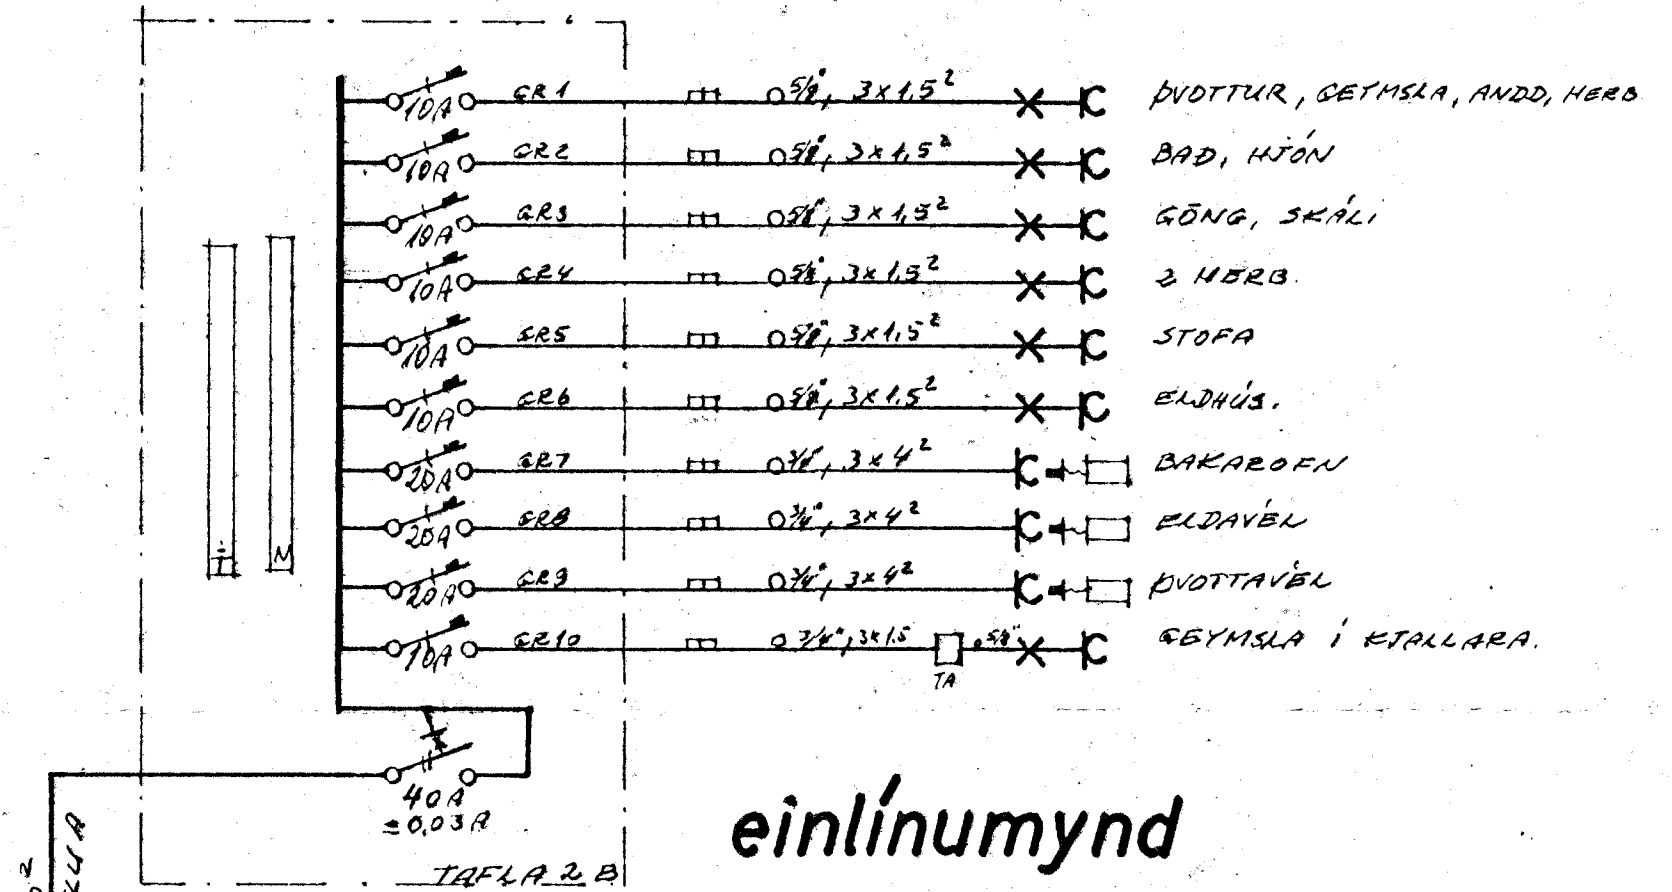 GR1 5/8", 3x1,5² ÞVOTTUR, GEYMSLA, ANDD, HERB
10A
GR2 5/8", 3x1,5² BAÐ, HJÓN
10A
GR3 5/8", 3x1,5² GÖNG, SKÁLI
10A
GR4 5/8", 3x1,5² 2 HERB.
10A
GR5 5/8", 3x1,5² STOFA
10A
GR6 5/8", 3x1.5² ELDHÚS.
10A
GR7 3/4", 3x4² BAKAROFN
20A
GR8 3/4", 3x4² ELDAVÉL
20A
GR9 3/4", 3x4² ÞVOTTAVÉL
20A
GR10 3/4", 3x1.5 5/8" GEYMSLA Í KJALLARA.
10A
TA
N
40A
≤0,03A
TAFLA 2 B
einlínumynd